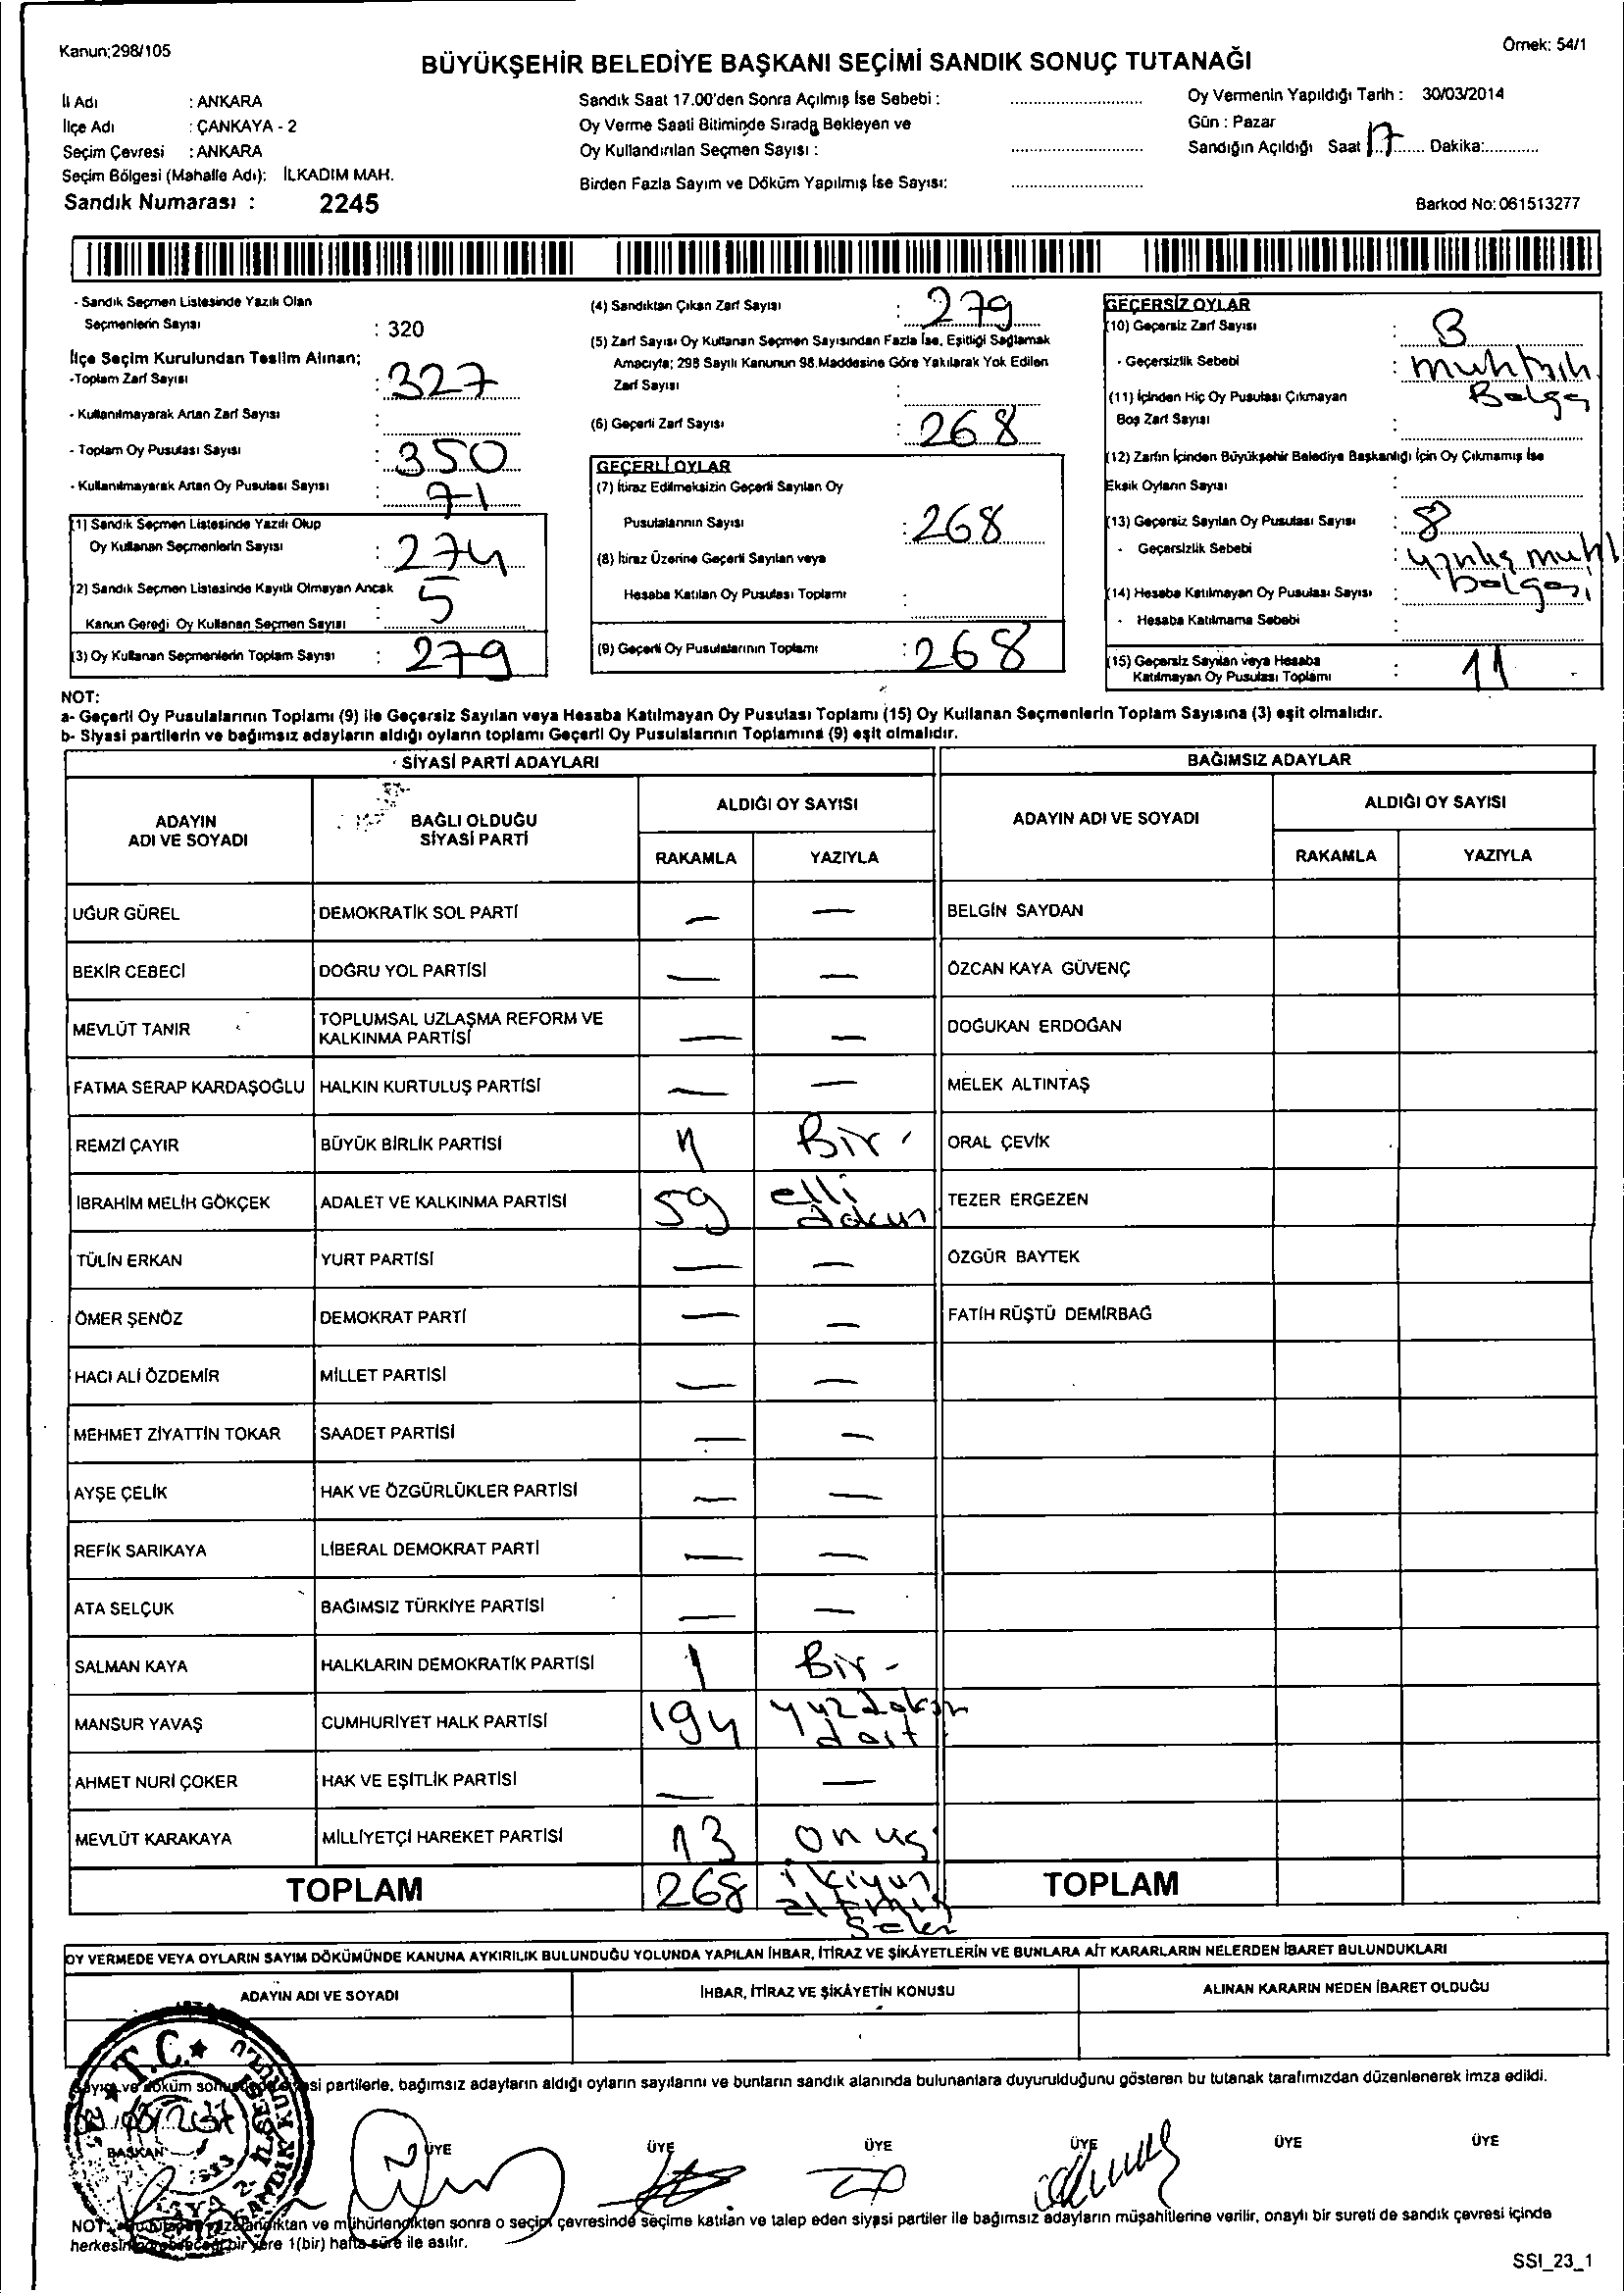 Kanun;298/105
Örnek: 54/1
BÜYÜKŞEHİR BELEDİYE BAŞKANI SEÇİMİ SANDIK SONUÇ TUTANAĞI
İl Adı : ANKARA
İlçe Adı : ÇANKAYA - 2
Seçim Çevresi : ANKARA
Seçim Bölgesi (Mahalle Adı): İLKADIM MAH.
Sandık Numarası : 2245
Sandık Saat 17.00'den Sonra Açılmış İse Sebebi :
Oy Verme Saati Bitiminde Sırada Bekleyen ve
Oy Kullandırılan Seçmen Sayısı :
Birden Fazla Sayım ve Döküm Yapılmış İse Sayısı:
Oy Vermenin Yapıldığı Tarih : 30/03/2014
Gün : Pazar
Sandığın Açıldığı Saat 17 Dakika:
Barkod No: 061513277
- Sandık Seçmen Listesinde Yazılı Olan
Seçmenlerin Sayısı : 320
İlçe Seçim Kurulundan Teslim Alınan;
-Toplam Zarf Sayısı : 327
- Kullanılmayarak Artan Zarf Sayısı :
- Toplam Oy Pusulası Sayısı : 350
- Kullanılmayarak Artan Oy Pusulası Sayısı : 71
(1) Sandık Seçmen Listesinde Yazılı Olup
Oy Kullanan Seçmenlerin Sayısı : 274
(2) Sandık Seçmen Listesinde Kayıtlı Olmayan Ancak
Kanun Gereği Oy Kullanan Seçmen Sayısı : 5
(3) Oy Kullanan Seçmenlerin Toplam Sayısı : 279
(4) Sandıktan Çıkan Zarf Sayısı : 279
(5) Zarf Sayısı Oy Kullanan Seçmen Sayısından Fazla İse, Eşitliği Sağlamak
Amacıyla; 298 Sayılı Kanunun 98.Maddesine Göre Yakılarak Yok Edilen
Zarf Sayısı :
(6) Geçerli Zarf Sayısı : 268
GEÇERLİ OYLAR
(7) İtiraz Edilmeksizin Geçerli Sayılan Oy
Pusulalarının Sayısı : 268
(8) İtiraz Üzerine Geçerli Sayılan veya
Hesaba Katılan Oy Pusulası Toplamı :
(9) Geçerli Oy Pusulalarının Toplamı : 268
GEÇERSİZ OYLAR
(10) Geçersiz Zarf Sayısı : 3
- Geçersizlik Sebebi :
(11) İçinden Hiç Oy Pusulası Çıkmayan
Boş Zarf Sayısı :
(12) Zarfın İçinden Büyükşehir Belediye Başkanlığı İçin Oy Çıkmamış İse
Eksik Oyların Sayısı :
(13) Geçersiz Sayılan Oy Pusulası Sayısı : 8
- Geçersizlik Sebebi :
(14) Hesaba Katılmayan Oy Pusulası Sayısı :
- Hesaba Katılmama Sebebi :
(15) Geçersiz Sayılan veya Hesaba
Katılmayan Oy Pusulası Toplamı : 11
NOT:
a- Geçerli Oy Pusulalarının Toplamı (9) ile Geçersiz Sayılan veya Hesaba Katılmayan Oy Pusulası Toplamı (15) Oy Kullanan Seçmenlerin Toplam Sayısına (3) eşit olmalıdır.
b- Siyasi partilerin ve bağımsız adayların aldığı oyların toplamı Geçerli Oy Pusulalarının Toplamına (9) eşit olmalıdır.
SİYASİ PARTİ ADAYLARI BAĞIMSIZ ADAYLAR
ADAYIN ADI VE SOYADI BAĞLI OLDUĞU SİYASİ PARTİ ALDIĞI OY SAYISI ADAYIN ADI VE SOYADI ALDIĞI OY SAYISI
RAKAMLA YAZIYLA RAKAMLA YAZIYLA
UĞUR GÜREL DEMOKRATİK SOL PARTİ — — BELGİN SAYDAN
BEKİR CEBECİ DOĞRU YOL PARTİSİ — — ÖZCAN KAYA GÜVENÇ
MEVLÜT TANIR TOPLUMSAL UZLAŞMA REFORM VE KALKINMA PARTİSİ — — DOĞUKAN ERDOĞAN
FATMA SERAP KARDAŞOĞLU HALKIN KURTULUŞ PARTİSİ — — MELEK ALTINTAŞ
REMZİ ÇAYIR BÜYÜK BİRLİK PARTİSİ 1 Bir - ORAL ÇEVİK
İBRAHİM MELİH GÖKÇEK ADALET VE KALKINMA PARTİSİ 59 elli dokuz TEZER ERGEZEN
TÜLİN ERKAN YURT PARTİSİ — — ÖZGÜR BAYTEK
ÖMER ŞENÖZ DEMOKRAT PARTİ — — FATİH RÜŞTÜ DEMİRBAĞ
HACI ALİ ÖZDEMİR MİLLET PARTİSİ — —
MEHMET ZİYATTİN TOKAR SAADET PARTİSİ — —
AYŞE ÇELİK HAK VE ÖZGÜRLÜKLER PARTİSİ — —
REFİK SARIKAYA LİBERAL DEMOKRAT PARTİ — —
ATA SELÇUK BAĞIMSIZ TÜRKİYE PARTİSİ — —
SALMAN KAYA HALKLARIN DEMOKRATİK PARTİSİ 1 Bir -
MANSUR YAVAŞ CUMHURİYET HALK PARTİSİ 194
AHMET NURİ ÇOKER HAK VE EŞİTLİK PARTİSİ — —
MEVLÜT KARAKAYA MİLLİYETÇİ HAREKET PARTİSİ 13 onuç
TOPLAM 268 TOPLAM
OY VERMEDE VEYA OYLARIN SAYIM DÖKÜMÜNDE KANUNA AYKIRILIK BULUNDUĞU YOLUNDA YAPILAN İHBAR, İTİRAZ VE ŞİKÂYETLERİN VE BUNLARA AİT KARARLARIN NELERDEN İBARET BULUNDUKLARI
ADAYIN ADI VE SOYADI İHBAR, İTİRAZ VE ŞİKÂYETİN KONUSU ALINAN KARARIN NEDEN İBARET OLDUĞU
T.C.
partilerle, bağımsız adayların aldığı oyların sayılarını ve bunların sandık alanında bulunanlara duyurulduğunu gösteren bu tutanak tarafımızdan düzenlenerek imza edildi.
BAŞKAN ÜYE ÜYE ÜYE ÜYE ÜYE ÜYE
NOT: ve mühürlendikten sonra o seçim çevresinde seçime katılan ve talep eden siyasi partiler ile bağımsız adayların müşahitlerine verilir, onaylı bir sureti de sandık çevresi içinde
bir yere 1(bir) hafta süre ile asılır.
SSI_23_1